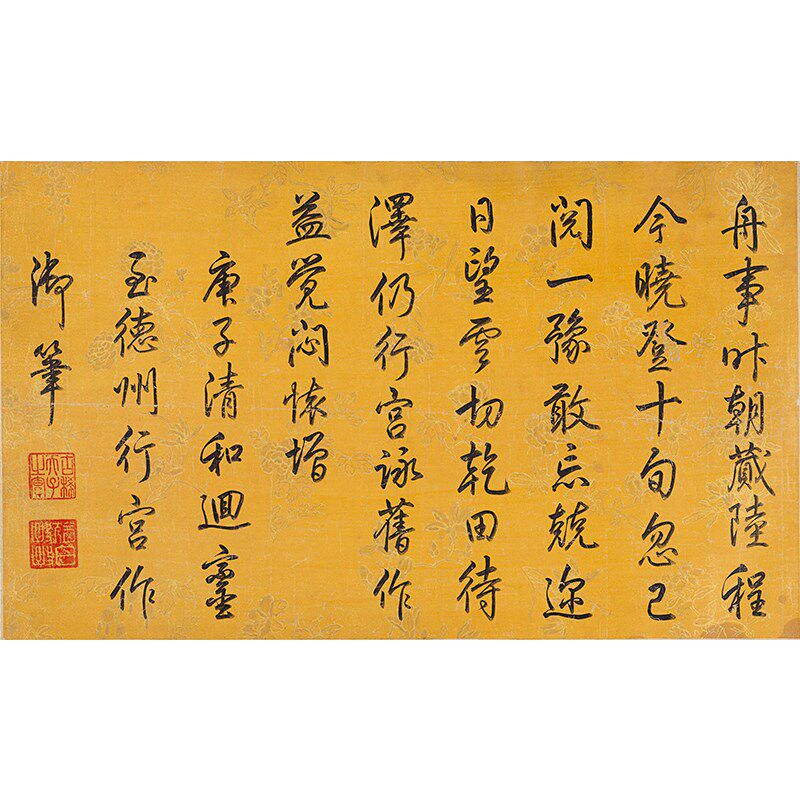 舟事昨朝蕆陸程
今曉登十旬忽已
閱一豫敢忘兢邇
日望雲切乾田待
澤仍行宮詠舊作
益覺悶懷增
庚子清和迴鑾
至德州行宮作
御筆
古稀天子之寶